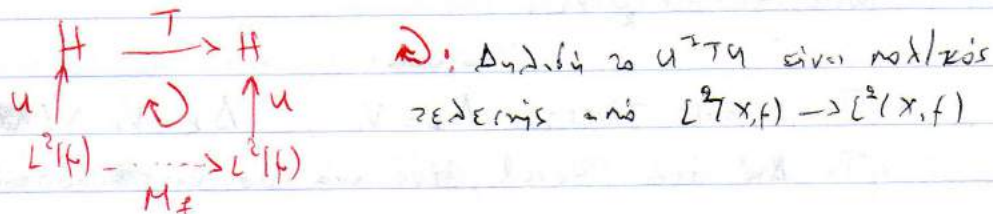 H T H
U U
L²(μ) L²(μ)
M_f
↻: Δηλαδή το U⁻¹TU είναι πολ/κός
τελεστής από L²(X,μ) → L²(X,μ)